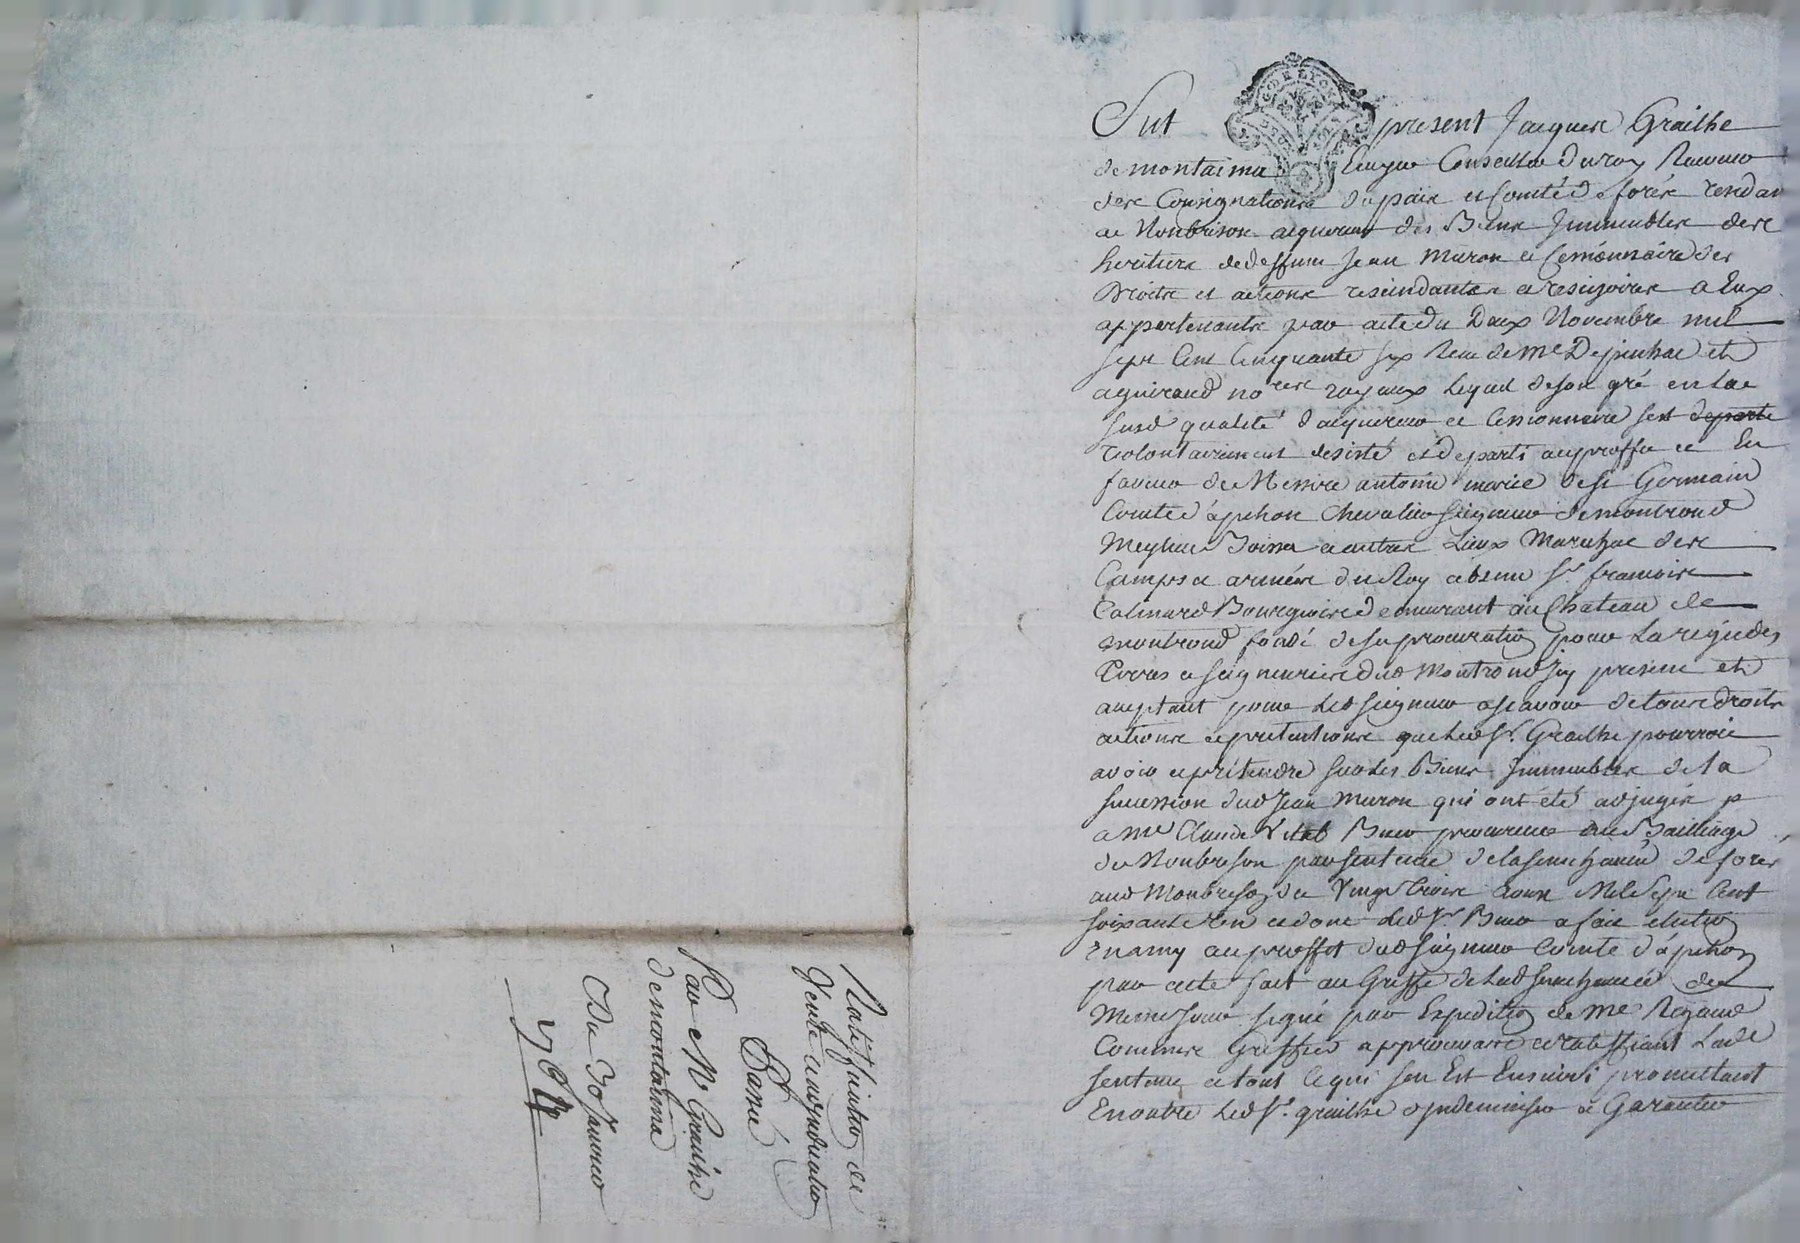 Fut present Jacques Grailhe
de montaima Ecuyer Conseiller du roy Receveur
des Consignations du païs et Comté de forés
de Monbrison acquereur des Biens Immeubles des
heritiers de deffunt Jean Muron et Cessionnaire des
Droits et actions rescindantes et rescisoires a Eux
appertenants par acte du Deux Novembre mil
sept Cent Cinquante six Receu de me Depinhac et
aguiraud no.res royaux Lequel de son gré en la
susd qualité d'acquereur et Cessionnaire sest departi
volontairement desisté et departi au proffit et En
faveur de Messire antoine marie de st Germain
Comte d'apchon Chevallier seigneur de montrond
Meylieu Boisset et autres Lieux Marechal des
Camps et armées du Roy absent sr. francois
Calmard Bourgeois demeurant au Chateau de
montrond fondé de sa procuration pour La regie des
Terres et seigneuries dud Montrond icy present et
acceptant pour Led seigneur asçavoir de tous droits
actions et pretentions que Led Sr. Grailhe pourroit
avoir et prétendre sur Les Biens Immeubles de la
succession dud Jean Muron qui ont été adjugés p
a me Claude Vital Buer procureur au Bailliage
de Monbrison par sentence de la senechaussée de forés
aud Monbrison du Vingt trois aoust Mil Sept Cent
soixante trois et dont Led Sr Buer a fait election
en amy au proffit dud seigneur Comte d'apchon
par acte fait au Greffe de Lad senechaussée du
Meme jour signé par Expedition de me
Commis Greffier approuvant et ratiffiant Lade
sentence et tout Ce qui sen Est Ensuivi promettant
En outre Led Sr. grailhe Indemniser et Garantir
Ratiffication de
Vente et adjudication
Passé
Par Mr Grailhe
de montaima
Du 30 Janvier
1764